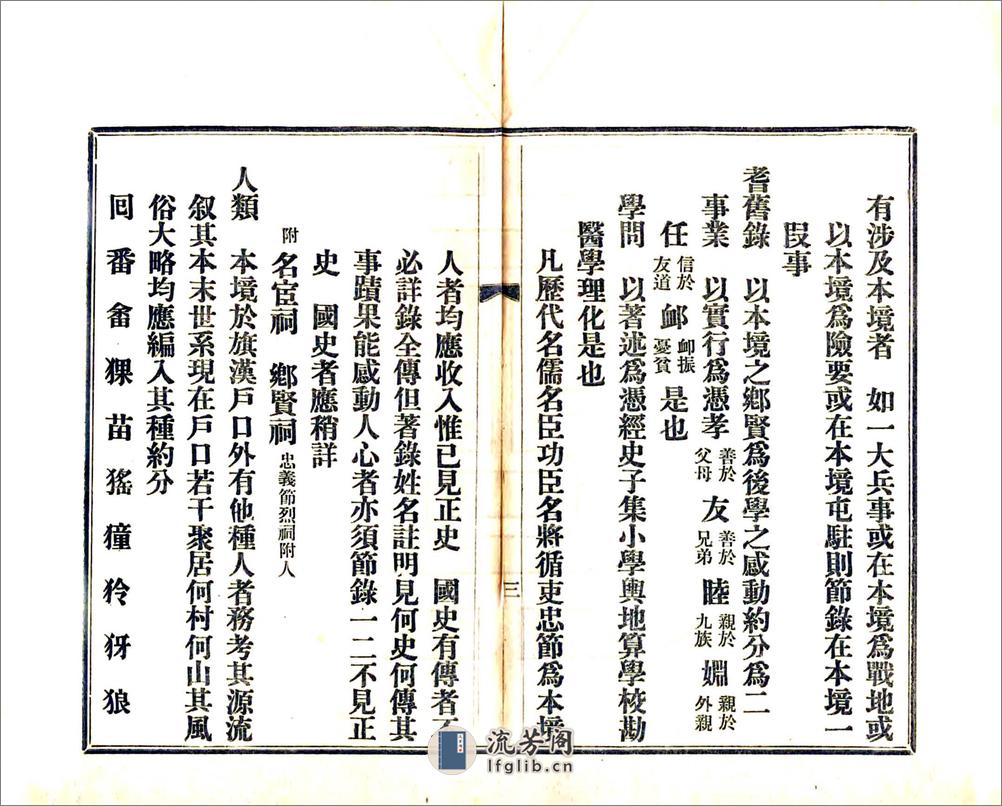 有涉及本境者　如一大兵事或在本境爲戰地或
以本境爲險要或在本境屯駐則節錄在本境一
叚事
耆舊錄　以本境之鄉賢爲後學之感動約分爲二
事業　以實行爲憑孝善於父母友善於兄弟睦親於九族婣親於外親
任信於友道卹卹振憂貧是也
學問　以著述爲憑經史子集小學輿地算學校勘
醫學理化是也
凡歷代名儒名臣功臣名將循吏忠節爲本境
三
人者均應收入惟已見正史　國史有傳者不
必詳錄全傳但著錄姓名註明見何史何傳其
事蹟果能感動人心者亦須節錄一二不見正
史　國史者應稍詳
附名宦祠　鄉賢祠忠義節烈祠附人
人類　本境於旗漢戶口外有他種人者務考其源流
叙其本末世系現在戶口若干聚居何村何山其風
俗大略均應編入其種約分
回　番　畲　猓　苗　猺　獞　狑　犽　狼
流芳閣
lfglib.cn